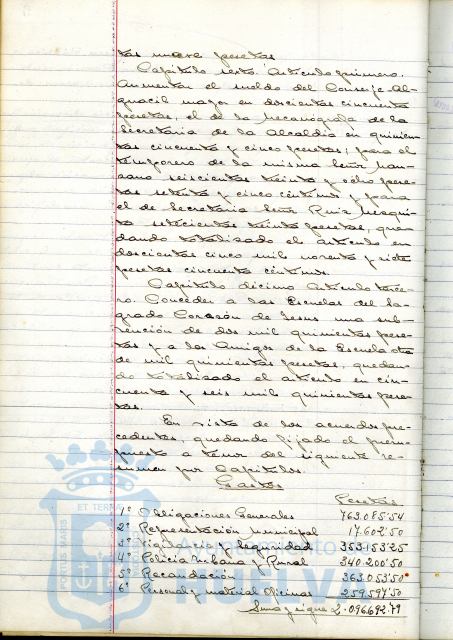 tas nueve pesetas
Capítulo sexto. Artículo primero.
Aumentar el sueldo del Conserje-Al-
guacil mayor en doscientas cincuenta
pesetas, el de la mecanógrafa de la
Secretaría de la Alcaldía en quinien-
tas cincuenta y cinco pesetas; para el
temporero de la misma Señor Man-
sano seiscientas treinta y ocho pese-
tas setenta y cinco céntimos y para
el de Secretaría Señor Ruiz Mezqui-
ta setecientas treinta pesetas, que-
dando totalizado el artículo en
doscientas cinco mil noventa y siete
pesetas cincuenta céntimos.
Capítulo décimo Artículo terce-
ro. Conceder a las Escuelas del Sa-
grado Corazón de Jesus una sub-
vención de dos mil quinientas pese-
tas y a los Amigos de la Escuela otra
de mil quinientas pesetas, quedan-
do totalizado el artículo en cin-
cuenta y seis mil quinientas pese-
tas.
En vista de los acuerdos pre-
cedentes, quedando fijado el presu-
puesto a tenor del siguiente re-
sumen por Capítulos.
Gastos
Pesetas
1º Obligaciones Generales 763.085.54
2º Representación municipal 17.602.50
3º Vigilancia y Seguridad 353.153.25
4º Policia Urbana y Rural 340.200.50
5º Recaudación 363.053.50
6º Personal y material oficinas 259.597.50
Suma y sigue 2.096.692.79
PORTUS MARIS ET TERRAE
Ayuntamiento de
HUELVA